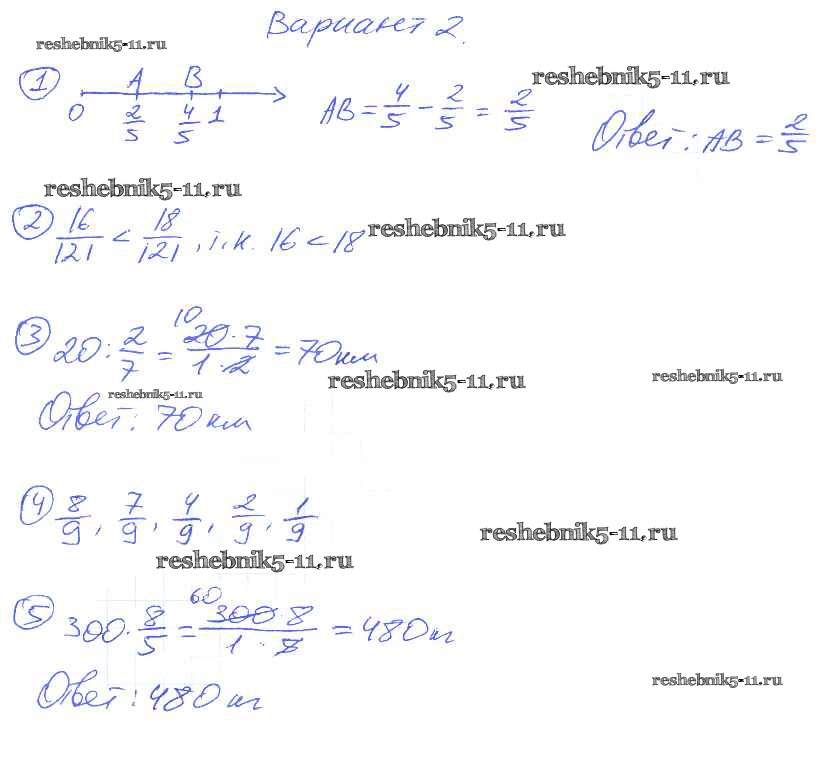 Вариант 2.
reshebnik5-11.ru
① A B
0 2/5 4/5 1
AB = 4/5 - 2/5 = 2/5
reshebnik5-11.ru
Ответ: AB = 2/5
reshebnik5-11.ru
② 16/121 < 18/121, т.к. 16 < 18
reshebnik5-11.ru
③ 20 : 2/7 = 10 20·7/1·2 = 70 км
reshebnik5-11.ru
reshebnik5-11.ru
reshebnik5-11.ru
Ответ: 70 км
④ 8/9, 7/9, 4/9, 2/9, 1/9
reshebnik5-11.ru
reshebnik5-11.ru
⑤ 300 · 8/5 = 60 300·8/1·5 = 480 кг
reshebnik5-11.ru
Ответ: 480 кг